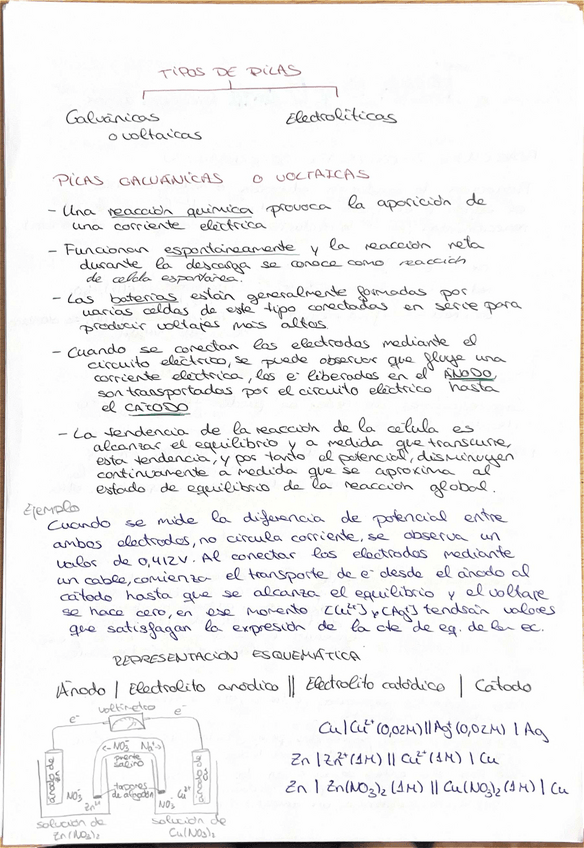 TIPOS DE PILAS
Galvánicas
o voltaicas
Electrolíticas
PILAS GALVÁNICAS O VOLTAICAS
- Una reacción química provoca la aparición de
una corriente eléctrica
- Funcionan espontáneamente y la reacción neta
durante la descarga se conoce como reacción
de celda espontánea.
- Las baterías están generalmente formadas por
varias celdas de este tipo conectadas en serie para
producir voltajes mas altos.
- Cuando se conectan los electrodos mediante el
circuito eléctrico, se puede observar que fluye una
corriente eléctrica, los e⁻ liberados en el ÁNODO,
son transportados por el circuito eléctrico hasta
el CÁTODO
- La tendencia de la reacción de la célula es
alcanzar el equilibrio y a medida que transcurre,
esta tendencia, y por tanto el potencial, disminuyen
continuamente a medida que se aproxima al
estado de equilibrio de la reacción global.
Ejemplo
Cuando se mide la diferencia de potencial entre
ambos electrodos, no circula corriente, se observa un
valor de 0,412V. Al conectar los electrodos mediante
un cable, comienza el transporte de e⁻ desde el ánodo al
cátodo hasta que se alcanza el equilibrio y el voltaje
se hace cero, en ese momento [Cu²⁺] y [Ag⁺] tendrán valores
que satisfagan la expresión de la cte de eq. de la ec.
REPRESENTACIÓN ESQUEMÁTICA
Ánodo | Electrolito anódico || Electrolito catódico | Cátodo
voltímetro
e⁻
e⁻
←NO₃⁻ Na⁺→
puente
salino
ánodo de
Zn
tapones
de algodón
NO₃⁻
Zn²⁺
NO₃⁻
Cu²⁺
solución de
Zn(NO₃)₂
solución de
Cu(NO₃)₂
Cu | Cu²⁺ (0,02M) || Ag⁺ (0,02M) | Ag
Zn | Zn²⁺ (1M) || Cu²⁺ (1M) | Cu
Zn | Zn(NO₃)₂ (1M) || Cu(NO₃)₂ (1M) | Cu